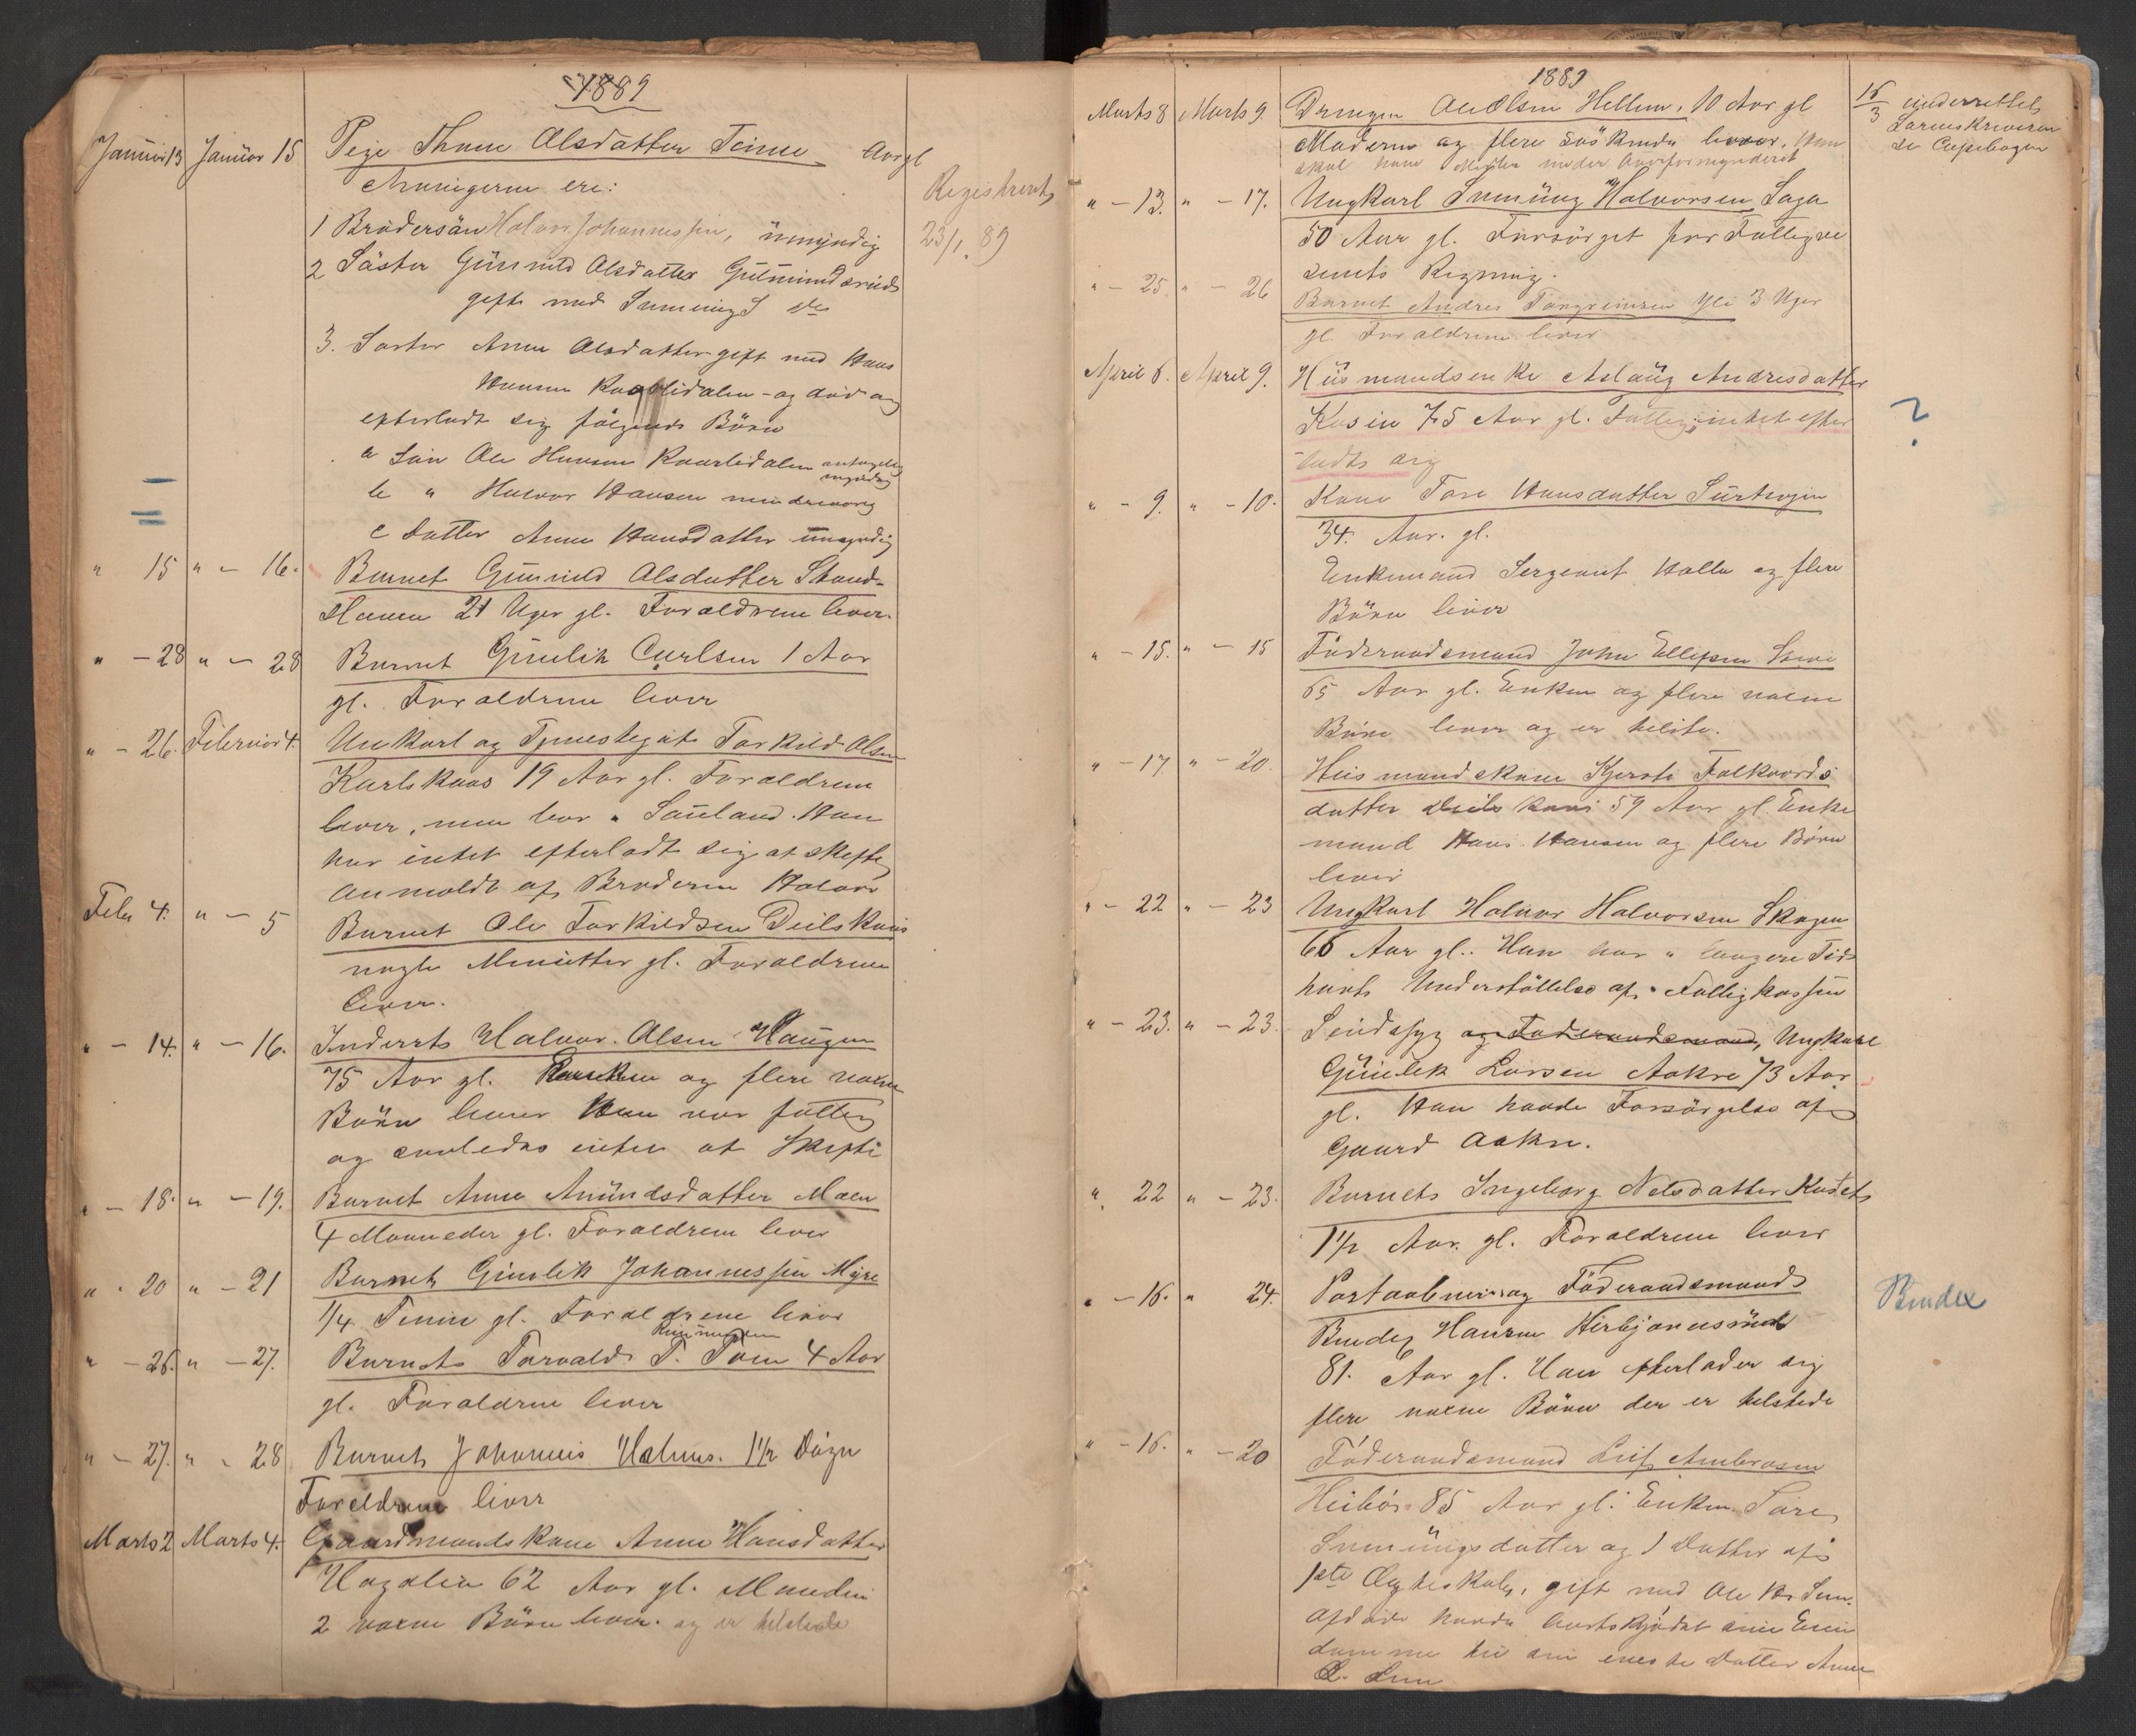 1889
Januar 13 Januar 15 Pige Thone Olsdatter Teine Aar gl
Arvingerne ere:
Registreret
1 Brodersøn Halvor Johannessen, umyndig 23/1 89
2 Søster Gunnild Olsdatter
gift med
3. Søster Anne Olsdatter gift med Hans
Hansen Kaaslidalen - og død og
efterladt sig følgende Børn
a Søn Ole Hansen Kaaslidalen antagelig
myndig
b " Halvor Hansen mindreaarig
c Datter Anne Hansdatter umyndig
" 15 " - 16. Barnet Gunnild Olsdatter Strand-
21 Uger gl. Forældrene lever.
" - 28 " - 28 Barnet Gunlik Carlsen 1 Aar
gl. Forældrene lever
" - 26. Februar 4. Unkarl og Tjenestegut Torkild Olsen
Karlskaas 19 Aar gl. Forældrene
lever, men bor i Sauland. Han
har intet efterladt sig at skifte
anmeldt af Broderen Halvor
Febr 4. " - 5 Barnet Ole Torkildsen Deilskaas
nogle Minutter gl. Forældrene
lever.
" - 14. " - 16. Inderst Halvor Olsen Haugen
75 Aar gl. og flere voxne
Børn lever Han var fattig
og saaledes intet at Skifte
" - 18. " - 19. Barnet Anne Amundsdatter Moen
4 Maaneder gl. Forældrene lever
" - 20 " - 21 Barnet Gunlik Johannessen Myre
1/4 Time gl. Forældrene lever
" - 26. " - 27. Barnet Torvald T. Toen 4 Aar
gl. Forældrene lever
" - 27. " - 28 Barnet Johannes 1 1/2 Døgn
Forældrene lever
Marts 2 Marts 4. Gaardmandskone Anne Hansdatter
Hagalia 62 Aar gl. Manden
2 voxne Børn lever. og er tilstede
1889
Marts 8 Marts 9. Drengen Ole Olsen Hellem. 10 Aar gl
Moderen og flere Søskende lever. Han
skal have Midler under Overformynderiet
15/3 underrettet
Sorenskriveren
" - 13. " - 17. Ungkarl Sunnüng Halvorsen Haga
50 Aar gl. Forsørget for Fattigvæ
senets Regning.
" - 25. " - 26 Barnet Andres Torgrimsen Yli 3 Uger
gl. Forældrene lever
April 6. April 9. Husmandsenke Aslaug Andresdatter
Kosin 75 Aar gl. Fattig, intet efter
ladt sig
?
" - 9. " - 10. Kone Tore Hansdatter
34. Aar. gl.
Enkemand Sergeant Holla og flere
Børn lever
" - 15. " - 15 Føderaadsmand John Ellefsen
65 Aar gl. Enken og flere voxne
Børn lever og er tilste.
" - 17. " - 20. Husmandskone Kjersti Folkvords
datter Deilskaas 59 Aar gl. Enke
mand Hans Hansen og flere Børn
lever
" - 22 " - 23 Ungkarl Halvor Halvorsen Skogen
66 Aar gl.. Han har i længere Tid
havt Understøttelse af Fattigkassen
" - 23. " - 23. Sindssyg og Føderaadsmand, Ungkarl
Gunlek Larsen Aakre 73 Aar
gl. Han havde Forsørgelse af
Gaard Aakre.
" 22 " - 23. Barnet Ingeborg Nelsdatter
1 1/2 Aar. gl. Forældrene lever
" - 16. " 24. og Føderaadsmand
Hansen
81. Aar gl. Han efterlader sig
flere voxne Børn der er tilstede
" - 16. " - 20 Føderaadsmand Leif Ambrosen
Heibø 85 Aar gl. Enken Tore
Sunnüngsdatter og 1 Datter af
1ste Ægteskab, gift med Ole
Afdøde havde bortskjødet sine Eien
domme til sin eneste Datter Anne